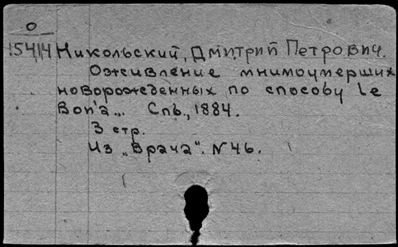 О
15414 Никольский, Дмитрий Петрович.
Оживление мнимоумерших
новорожденных по способу Le
Bon'a... Спь., 1884.
3 стр.
Из „Врача". N 46.